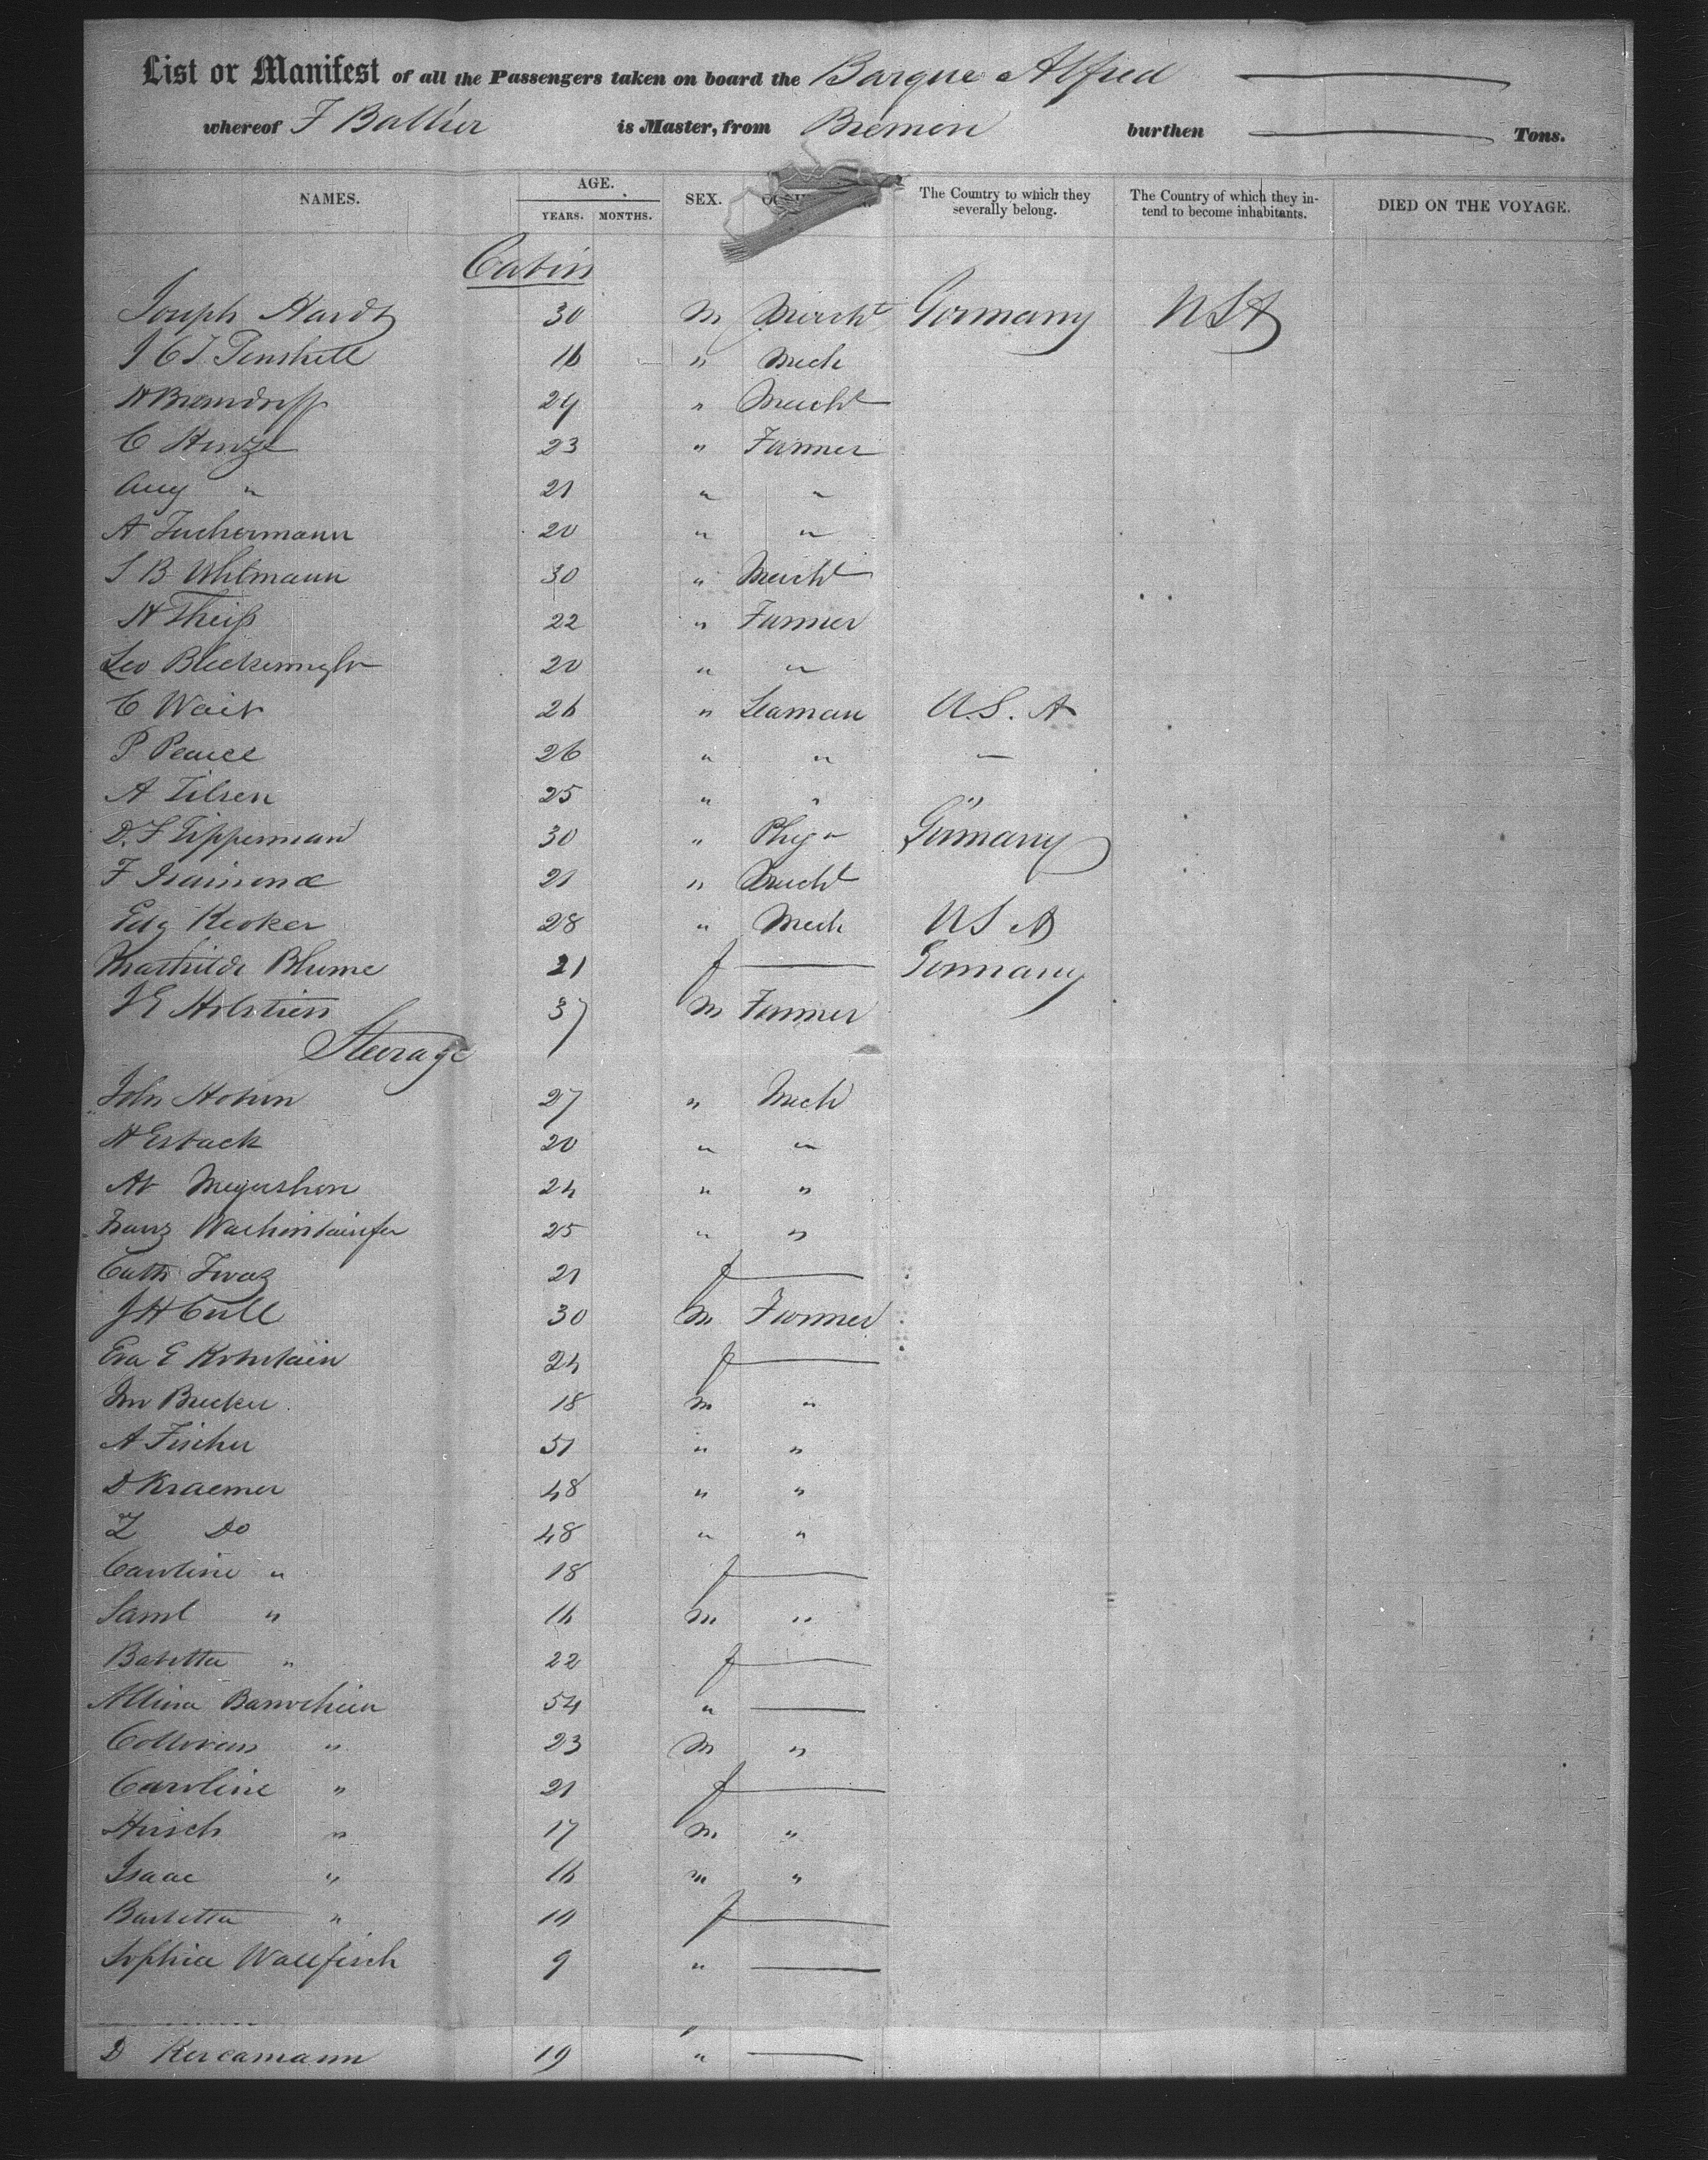 List or Manifest of all the Passengers taken on board the Barque Alfred
whereof F is Master, from Bremen burthen Tons.
NAMES. AGE. YEARS. MONTHS. SEX. The Country to which they severally belong. The Country of which they intend to become inhabitants. DIED ON THE VOYAGE.
Cabin
Joseph Hardt 30 M Mercht Germany USA
J C T 16 " Mech
H 29 " Mercht
C Hinze 23 " Farmer
Aug " 21 " "
A Tuchermann 20 " "
S B Uhlmann 30 " Mercht
H Theiß 22 " Farmer
Leo 20 " "
C Wait 26 " Seaman U.S. A
P Pearce 26 " " "
A Tilsen 25 " " "
D. F Tipperman 30 " Germany
F 21 " Mercht
Edg Kooker 28 " Mech U S A
Mathilde Blume 21 f — Germany
J E Holstien 37 M Farmer
Steerage
John 27 " Mech
H Esback 20 " "
24 " "
Franz 25 " "
Cath 21 f —
J H Cull 30 M Farmer
Eva E 24 f —
Becker 18 M "
A Fischer 51 " "
D Kraemer 48 " "
Z Do 48 " "
Caroline " 18 f —
Saml " 16 M "
Babetta " 22 f —
54 " —
" 23 M "
Caroline " 21 f —
Hirsch " 17 M "
Isaac " 16 m "
Barbetta " 10 f —
Sophia Wallfisch 9 " —
D Kercamann 19 " —